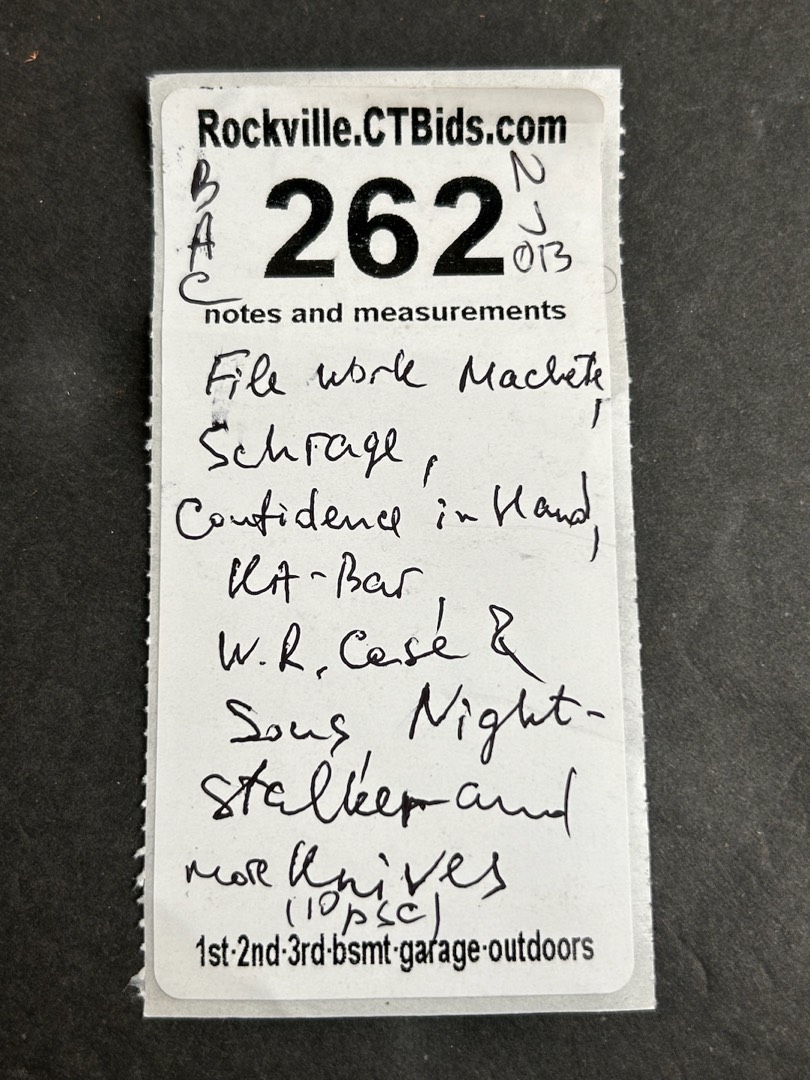 Rockville.CTBids.com
B
A
C
262
N
J
OB
notes and measurements
File work Machete,
Schrage,
Confidence in Hand,
KA-Bar,
W.R. Case &
Sons, Night-
stalker and
more Knives
(10 psc)
1st·2nd·3rd·bsmt·garage·outdoors